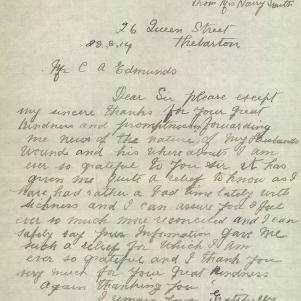 From Mrs Harry Smith
26 Queen Street
Thebarton
Mr C A Edmunds
Dear Sir please except
my sincere thanks for your great
kindness and promptness in forwarding
me news of the nature of my Husbands
wound and his where abouts I am
ever so grateful to you sir it has
given me quite a relief to know as I
have had rather a bad time lately with
sickness and I can assure you I feel
ever so much more reconciled and I can
safely say your Information gave me
such a relief for which I am
ever so grateful and I thank you
very much for your great kindness
Again thanking you
I remain yours gratefully